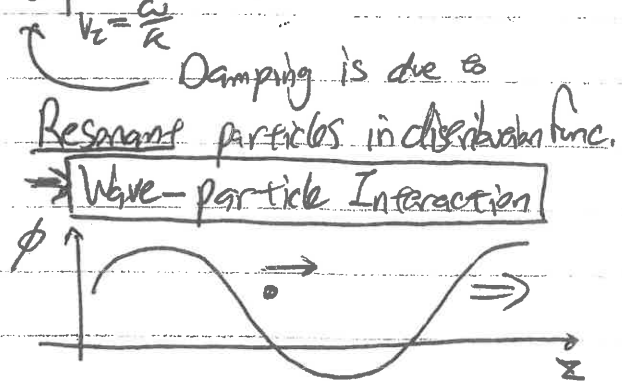 v_z = ω/k
Damping is due to
Resonant particles in distribution func.
⇒ Wave-particle Interaction
ϕ
z